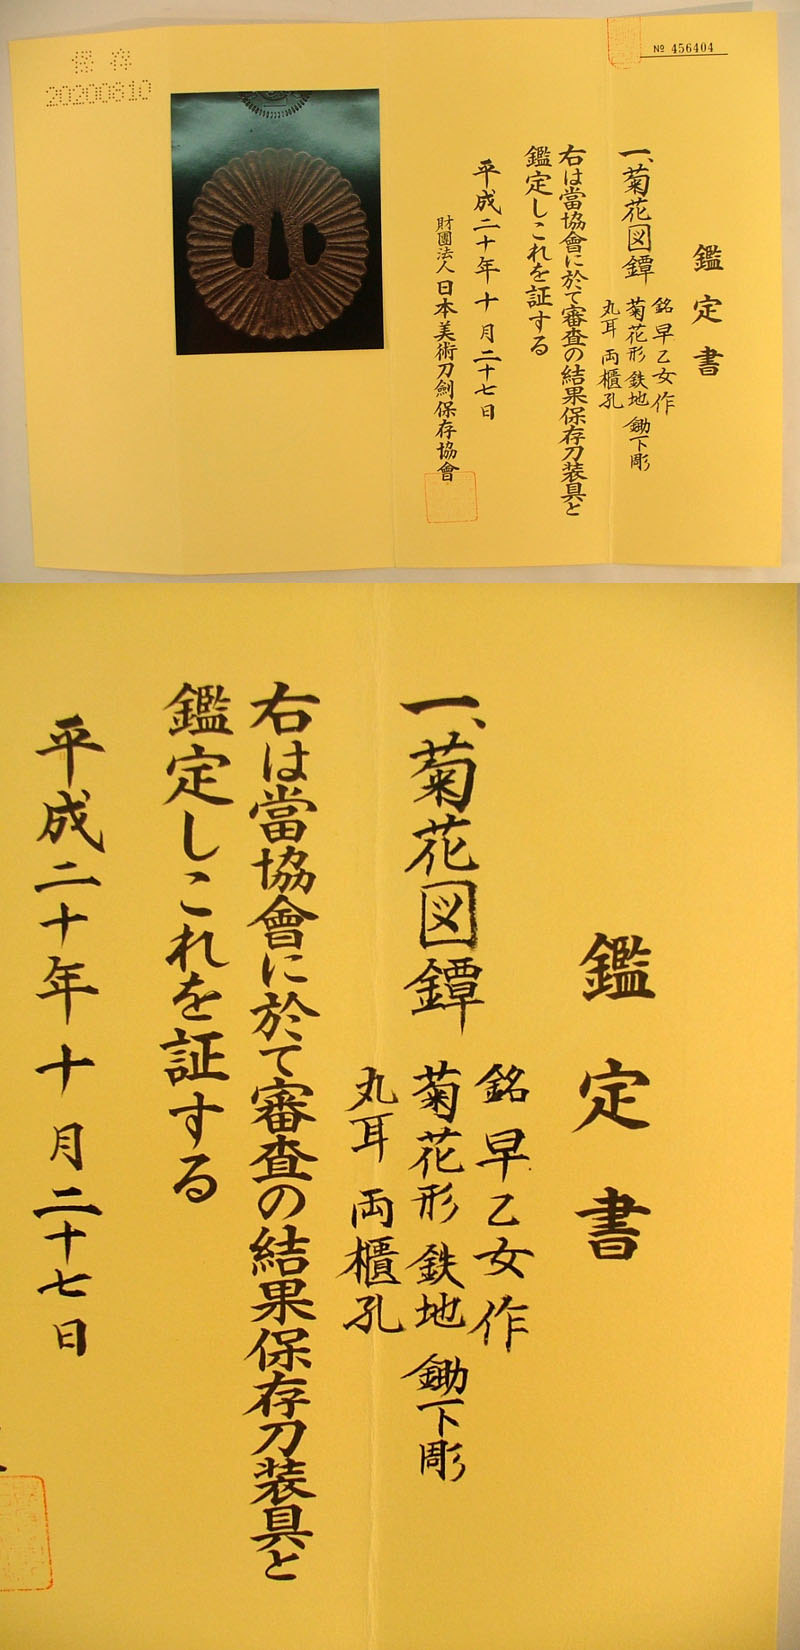 保存
20200810
№ 456404
鑑定書
一、菊花図鐔
銘 早乙女作
菊花形 鉄地 鋤下彫
丸耳 両櫃孔
右は當協會に於て審査の結果保存刀装具と
鑑定しこれを証する
平成二十年十月二十七日
財團法人 日本美術刀劍保存協會
鑑定書
一、菊花図鐔
銘 早乙女作
菊花形 鉄地 鋤下彫
丸耳 両櫃孔
右は當協會に於て審査の結果保存刀装具と
鑑定しこれを証する
平成二十年十月二十七日